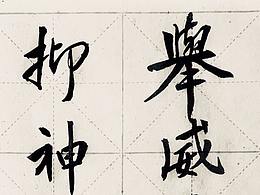 舉威
抑神